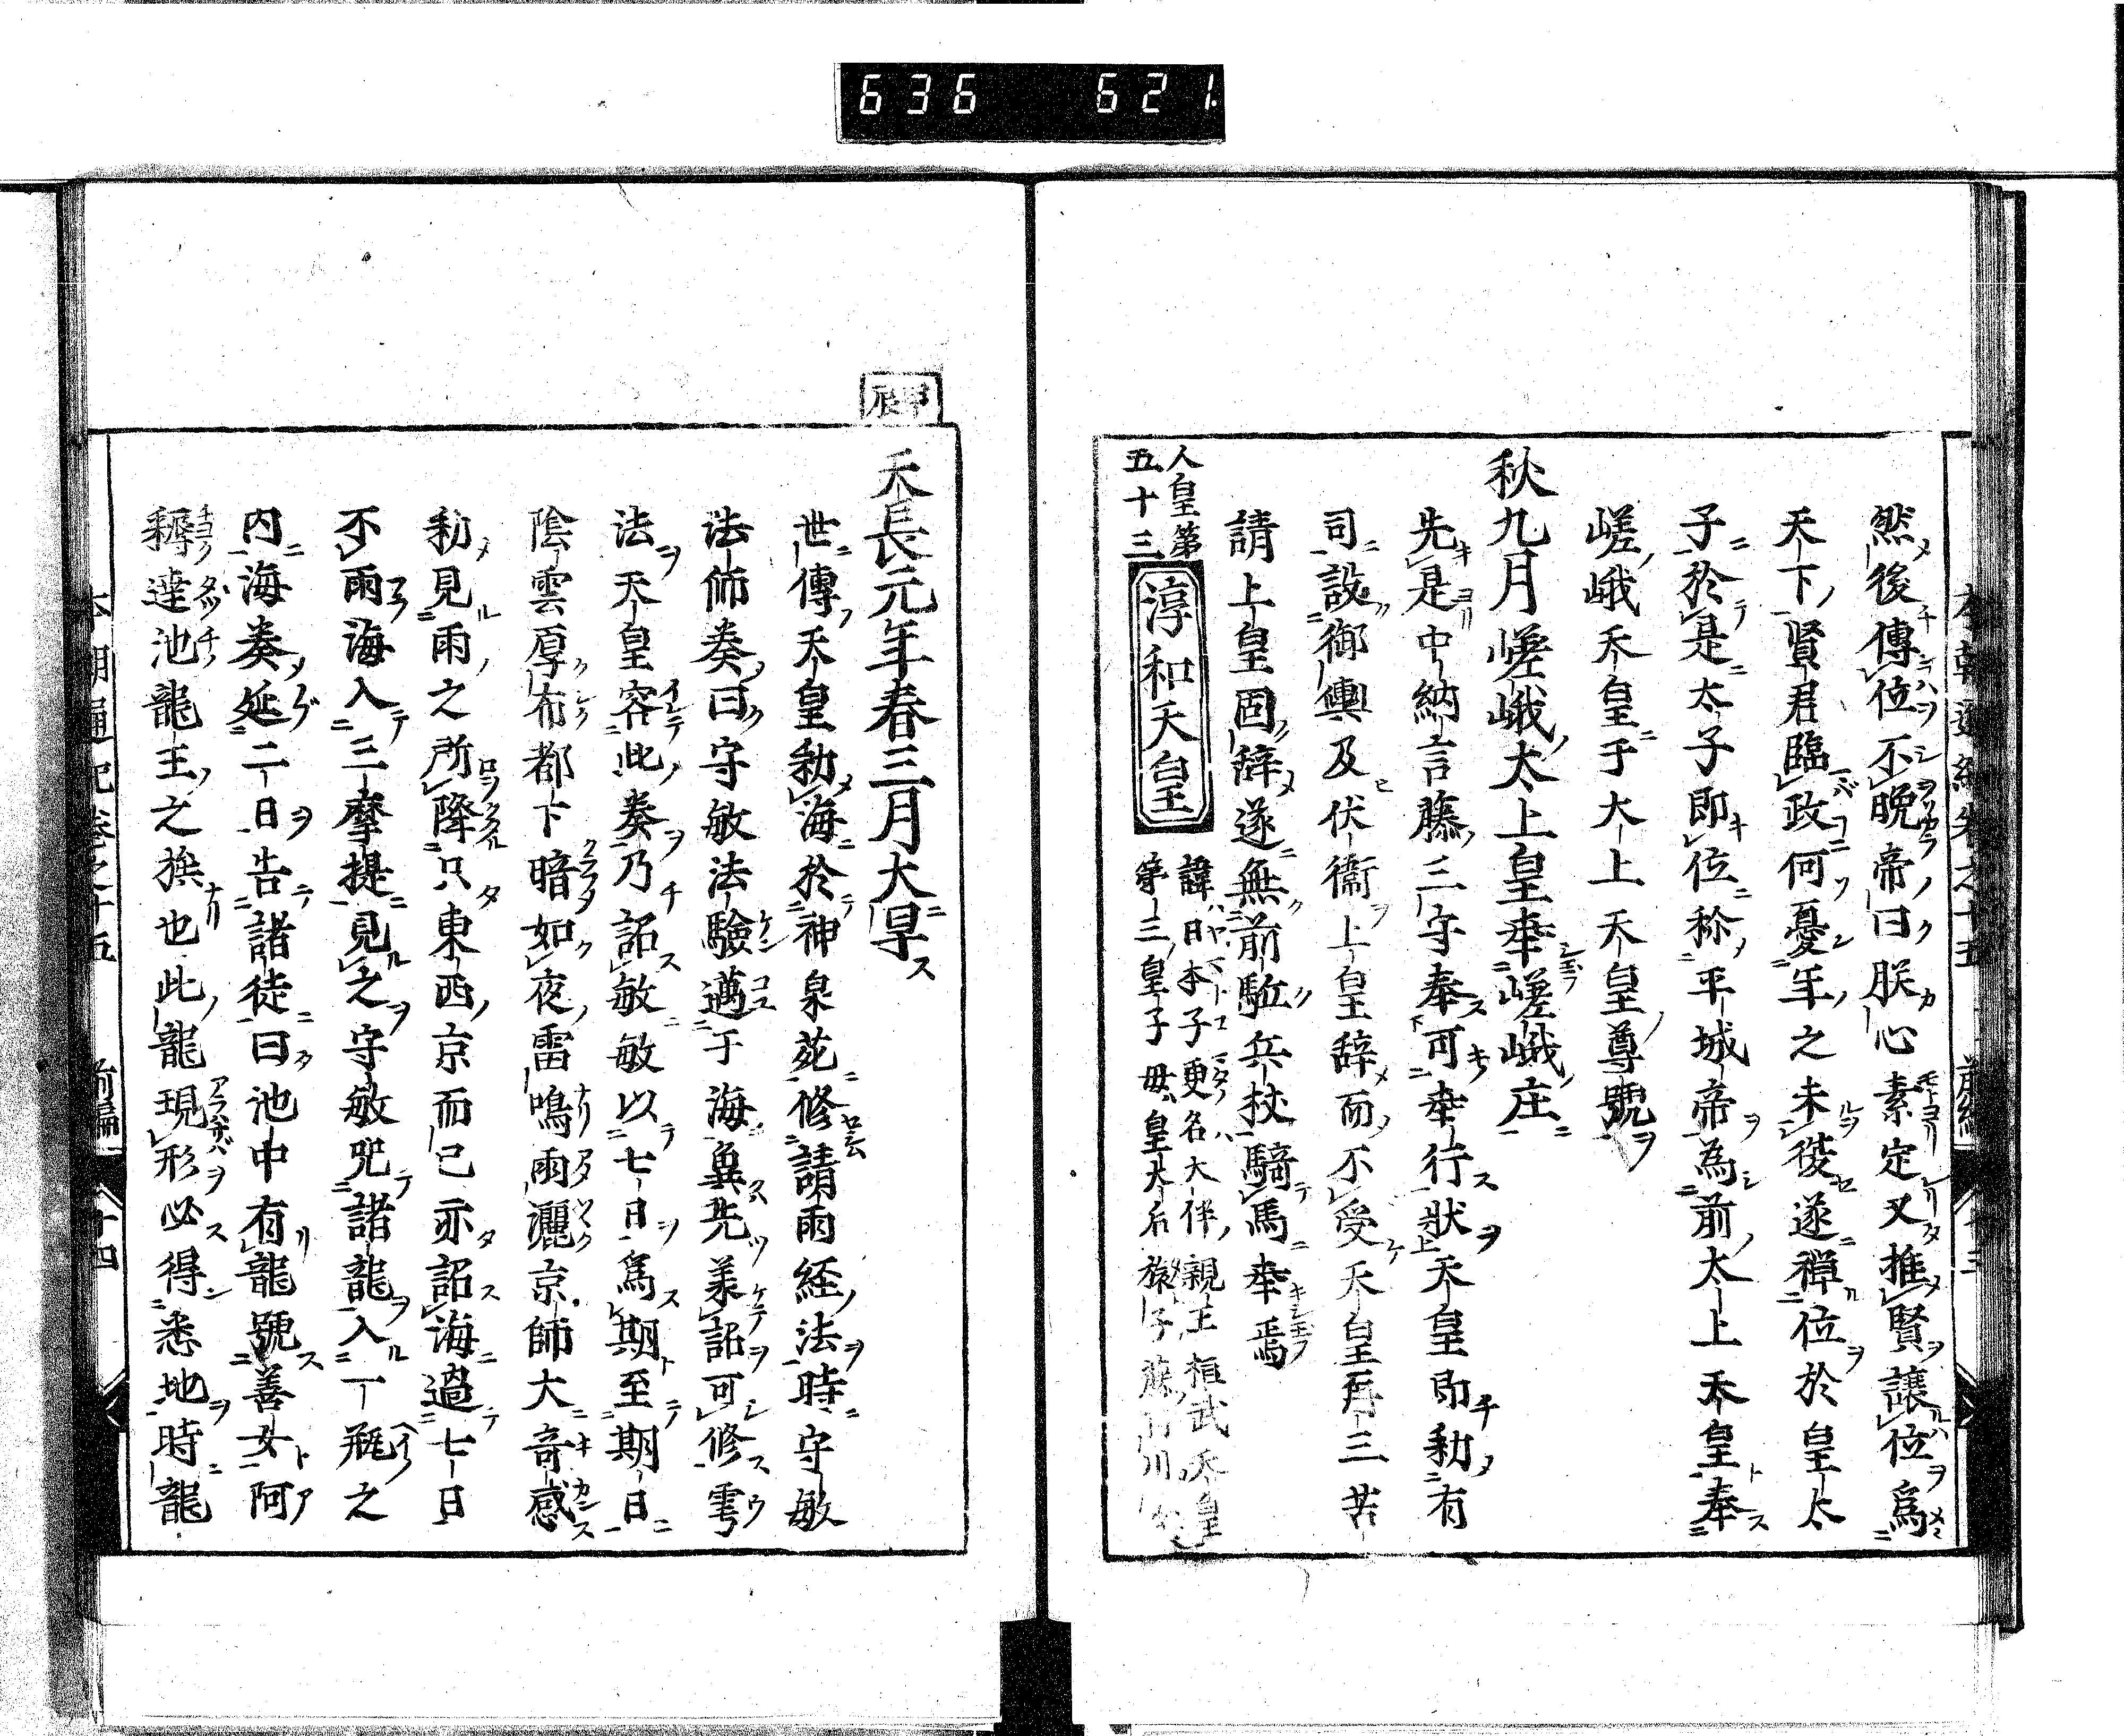 636 621
然後傳位不晩帝曰朕心素定又推賢讓位爲
天下賢君臨政何憂年之未徒遂禅位於皇太
子於是太子即位称平城帝為前太上天皇奉
嵯峨天皇于大上天皇尊號
秋九月嵯峨太上皇幸嵯峨庄
先是中納言藤三守奉可幸行狀天皇即勅有
司設御輿及伏衞上皇辞而不受天皇再三苦
請上皇固辞遂無前駈兵杖騎馬幸焉
人皇第
五十三
淳和天皇
諱日本子更名大伴親王桓武天皇
第三皇子母皇太后旅子藤
甲辰
天長元年春三月大旱
世傳天皇勅海於神泉苑修請雨経法時守敏
法師奏曰守敏法驗邁于海冀先羕詔可修雩
法天皇容此奏乃詔敏敏以七日爲期至期日
陰雲厚布都下暗如夜雷鳴雨灑京師大奇感
勅見雨之所降只東西京而已亦詔海過七日
不雨海入三摩提見之守敏咒諸龍入一瓶之
内海奏延二日告諸徒曰池中有龍號善女阿
耨達池龍王之族也此龍現形必得悉地時龍
本朝通紀卷之十五 前編 十四